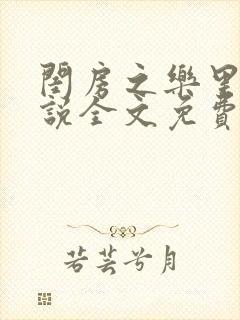 閨房之樂里
說全文免費
若芸兮月